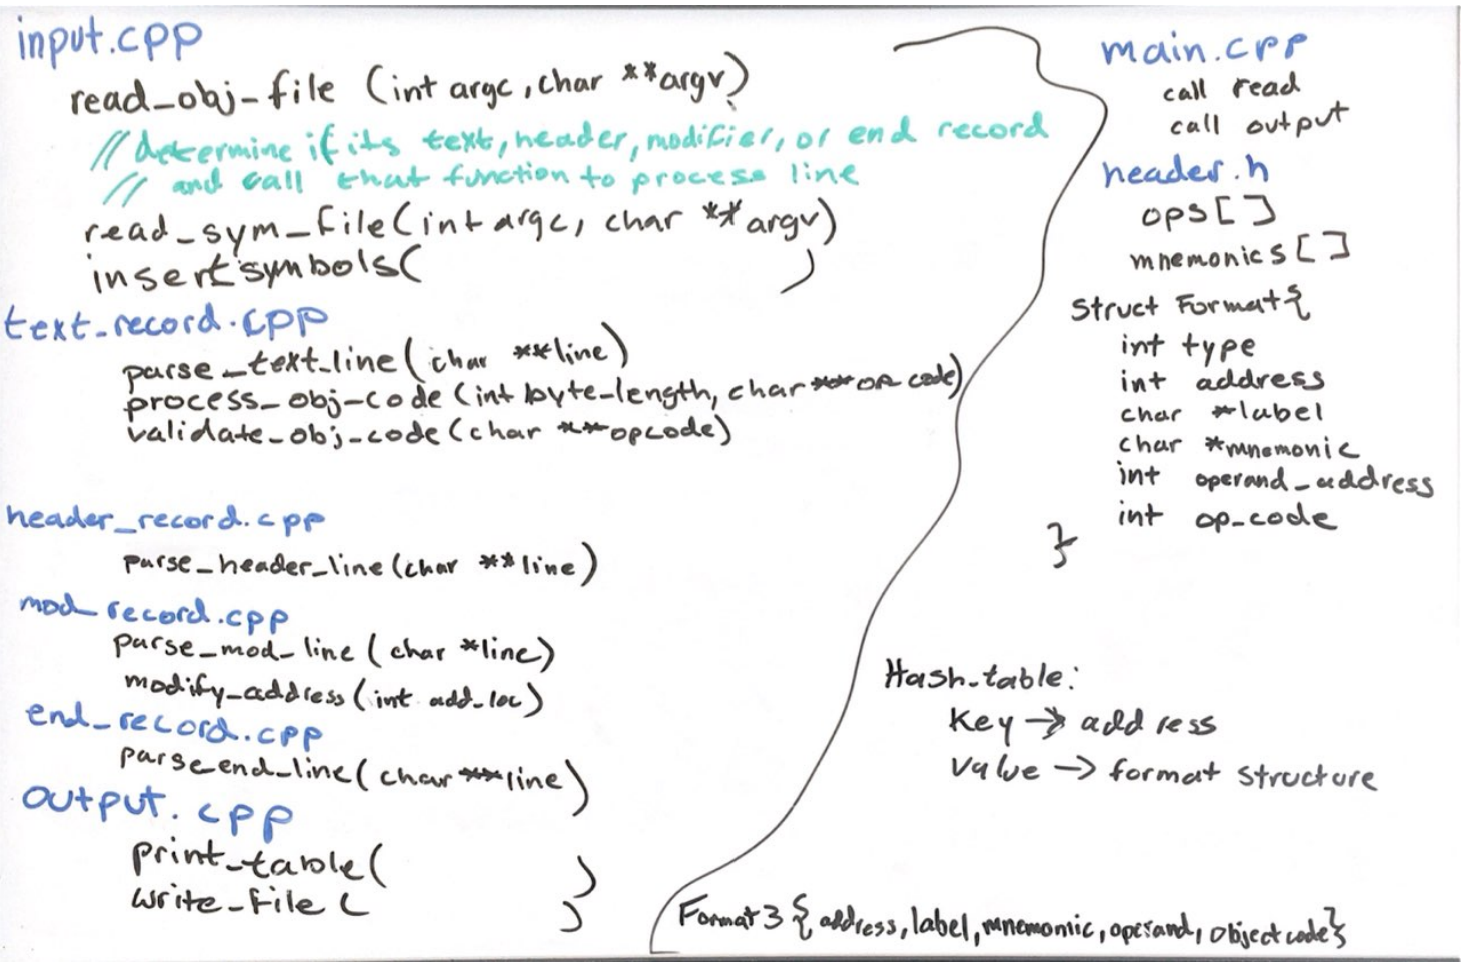 input.cpp
read_obj_file (int argc, char **argv)
//determine if its text, header, modifier, or end record
// and call that function to process line
read_sym_file(int argc, char **argv)
insertsymbols( )
text_record.cpp
parse_text_line(char **line)
process_obj_code (int byte_length, char ***op code)
validate_obj_code(char **opcode)
header_record.cpp
parse_header_line(char **line)
mod_record.cpp
parse_mod_line (char *line)
modify_address(int add_loc)
end_record.cpp
parse_end_line(char **line)
output.cpp
print_table( )
write_file ( )
main.cpp
call read
call output
header.h
ops[]
mnemonics[]
Struct Format{
int type
int address
char *label
char *mnemonic
int operand_address
int op_code
}
Hash_table:
Key → address
value → format structure
Format 3 { address, label, mnemonic, operand, object code}